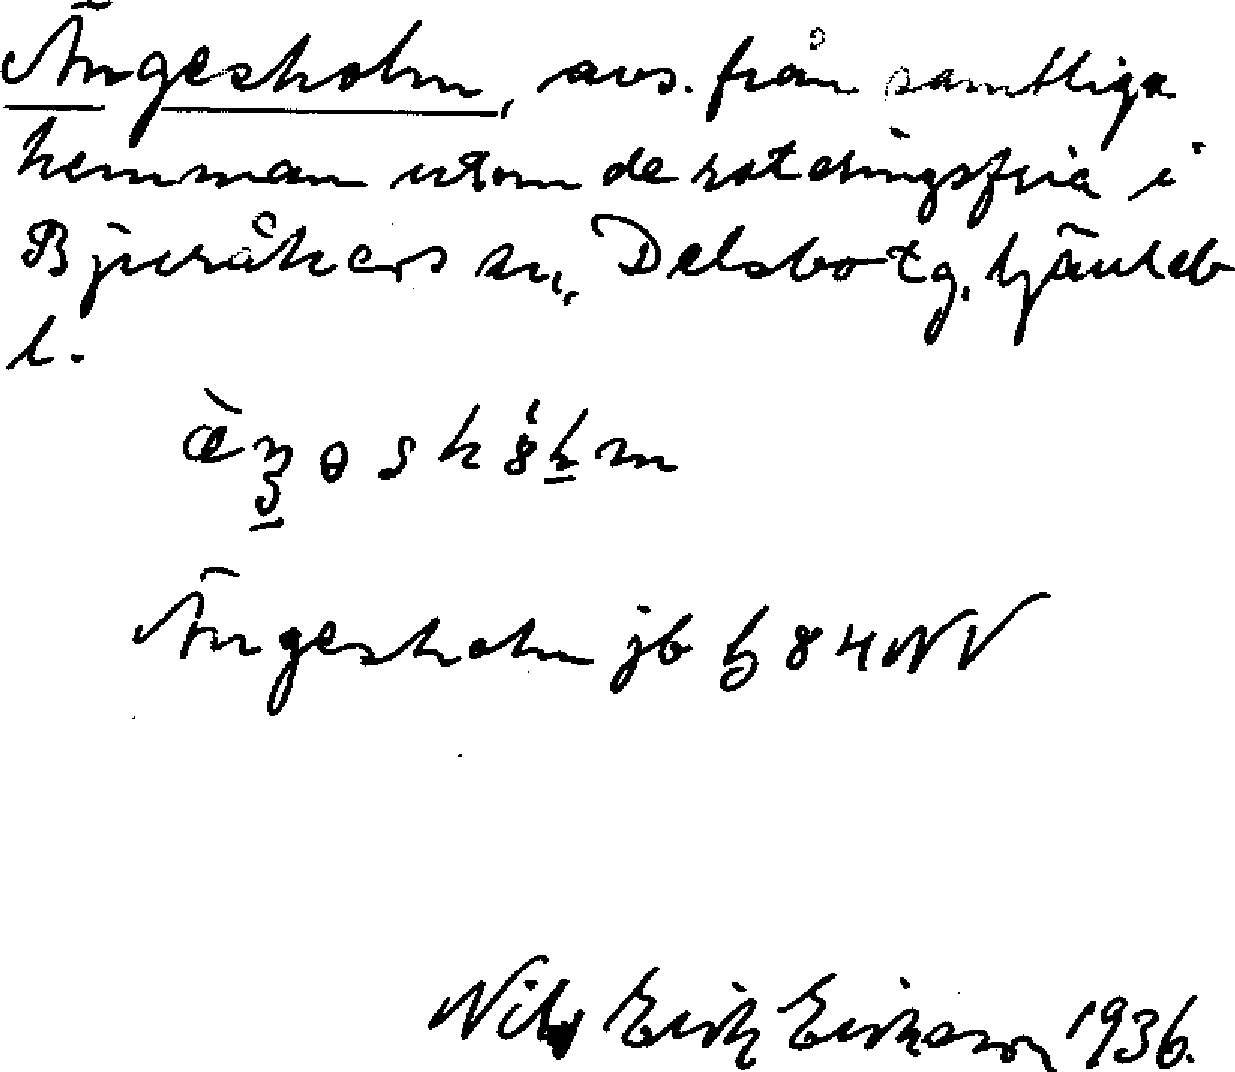 Ängesholm, avs. från samtliga
hemman utom de roteringsfria i
Bjuråkers sn, Delsbo tg, Gävleb
l.
Ängesholm jb h 84 NV
Nils Erik Eriksson 1936.